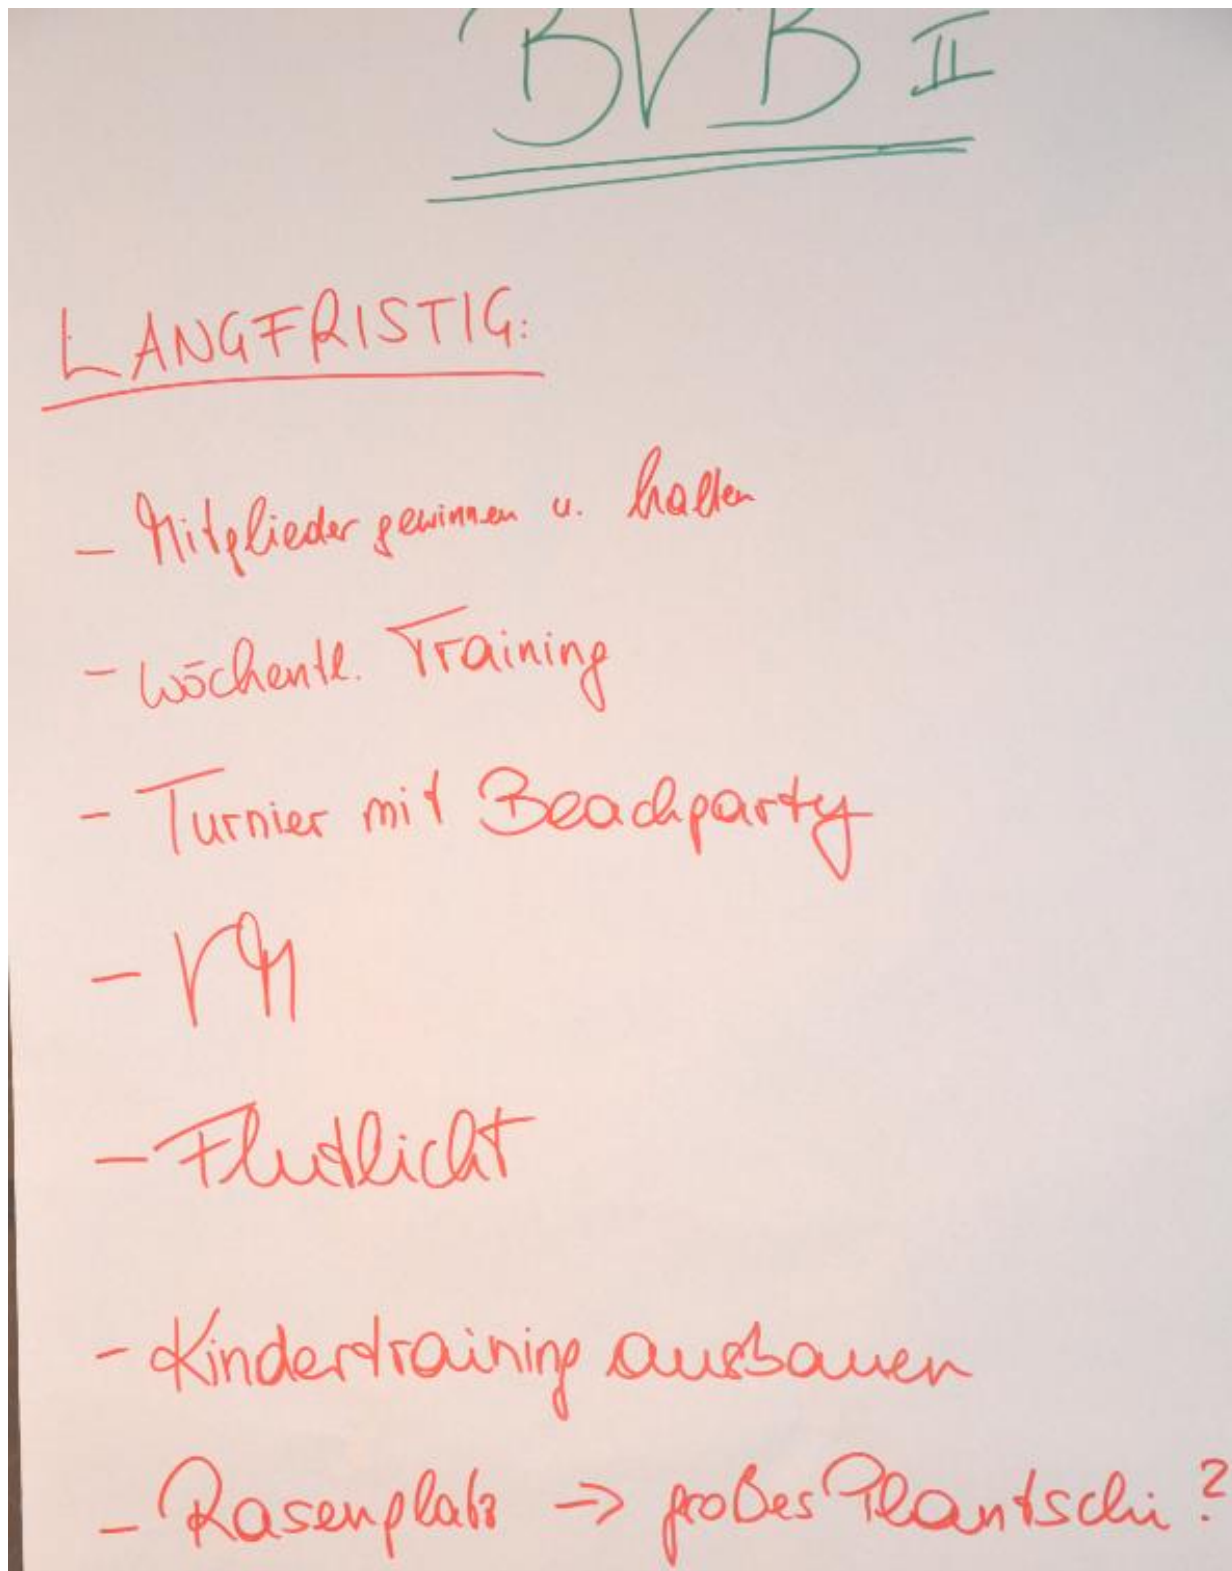 BVB II
LANGFRISTIG:
- Mitglieder gewinnen u. halten
- wöchentl. Training
- Turnier mit Beachparty
- VM
- Flutlicht
- Kindertraining ausbauen
- Rasenplatz -> großes Plantschi?